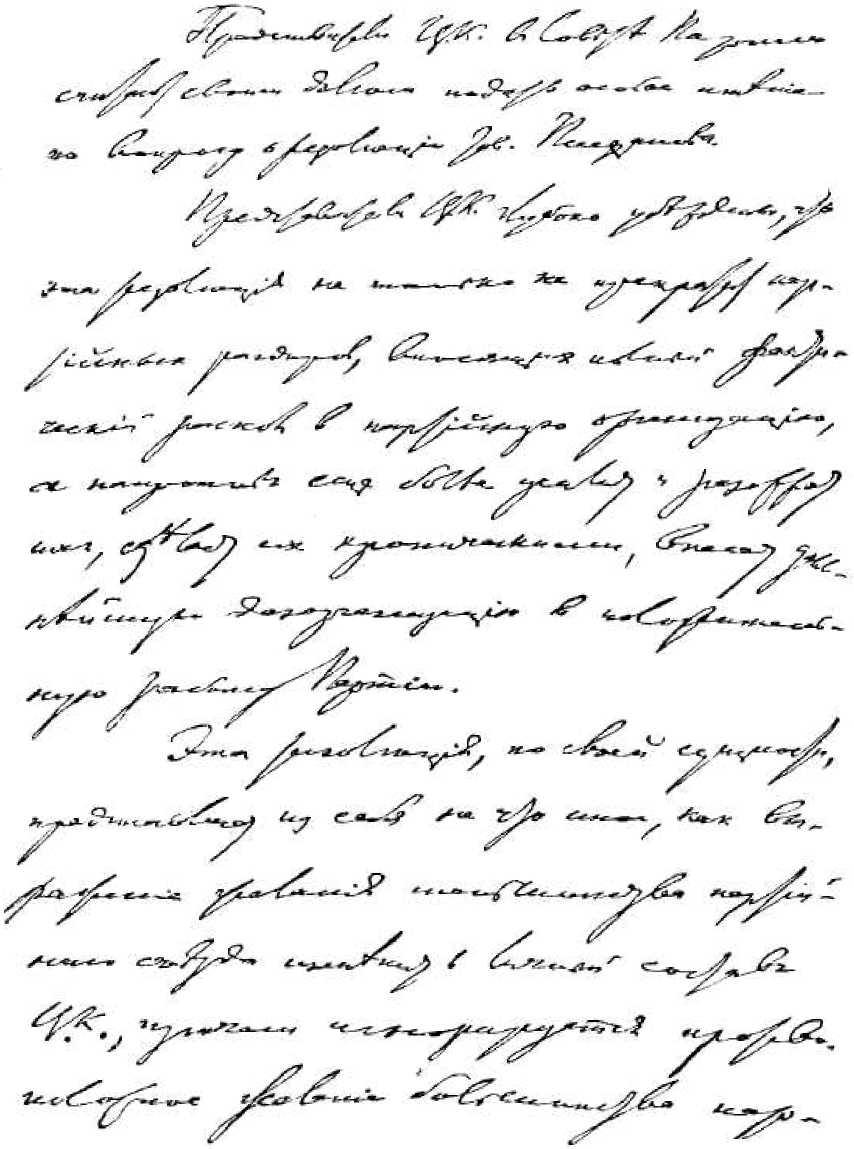 Представители Ц.К. в Совѣтѣ Партии
считают своим долгом подать особое мнѣніе
по вопросу о резолюціи тов. Плеханова.
Представители Ц.К. глубоко убѣждены, что
эта резолюція не только не прекратит пар-
тійных раздоров, вносящих полный факти-
ческій раскол в партійную организацію,
а напротив еще болѣе усилит и разожжет
их, сдѣлает их хроническими, внесет даль-
нѣйшую дезорганизацію в положитель-
ную работу Партіи.
Эта резолюція, по своей сущности,
представляет из себя не что иное, как вы-
раженіе желанія меньшинства партій-
наго съѣзда измѣнить личный состав
Ц.К., причем игнорируется противо-
положное желаніе большинства пар-